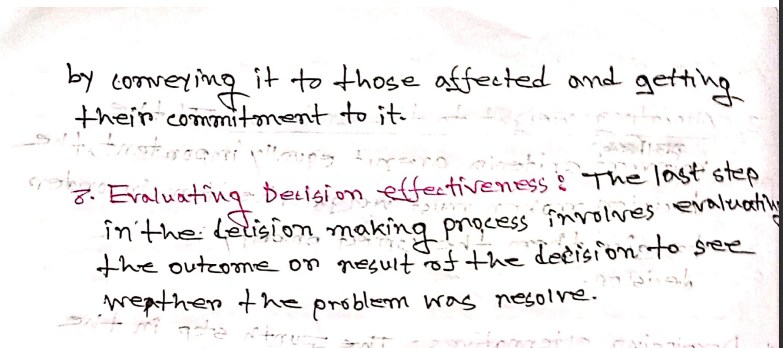 by conveying it to those affected and getting
their commitment to it.
8. Evaluating Decision effectiveness : The last step
in the decision making process involves evaluating
the outcome or result of the decision to see
weather the problem was resolve.